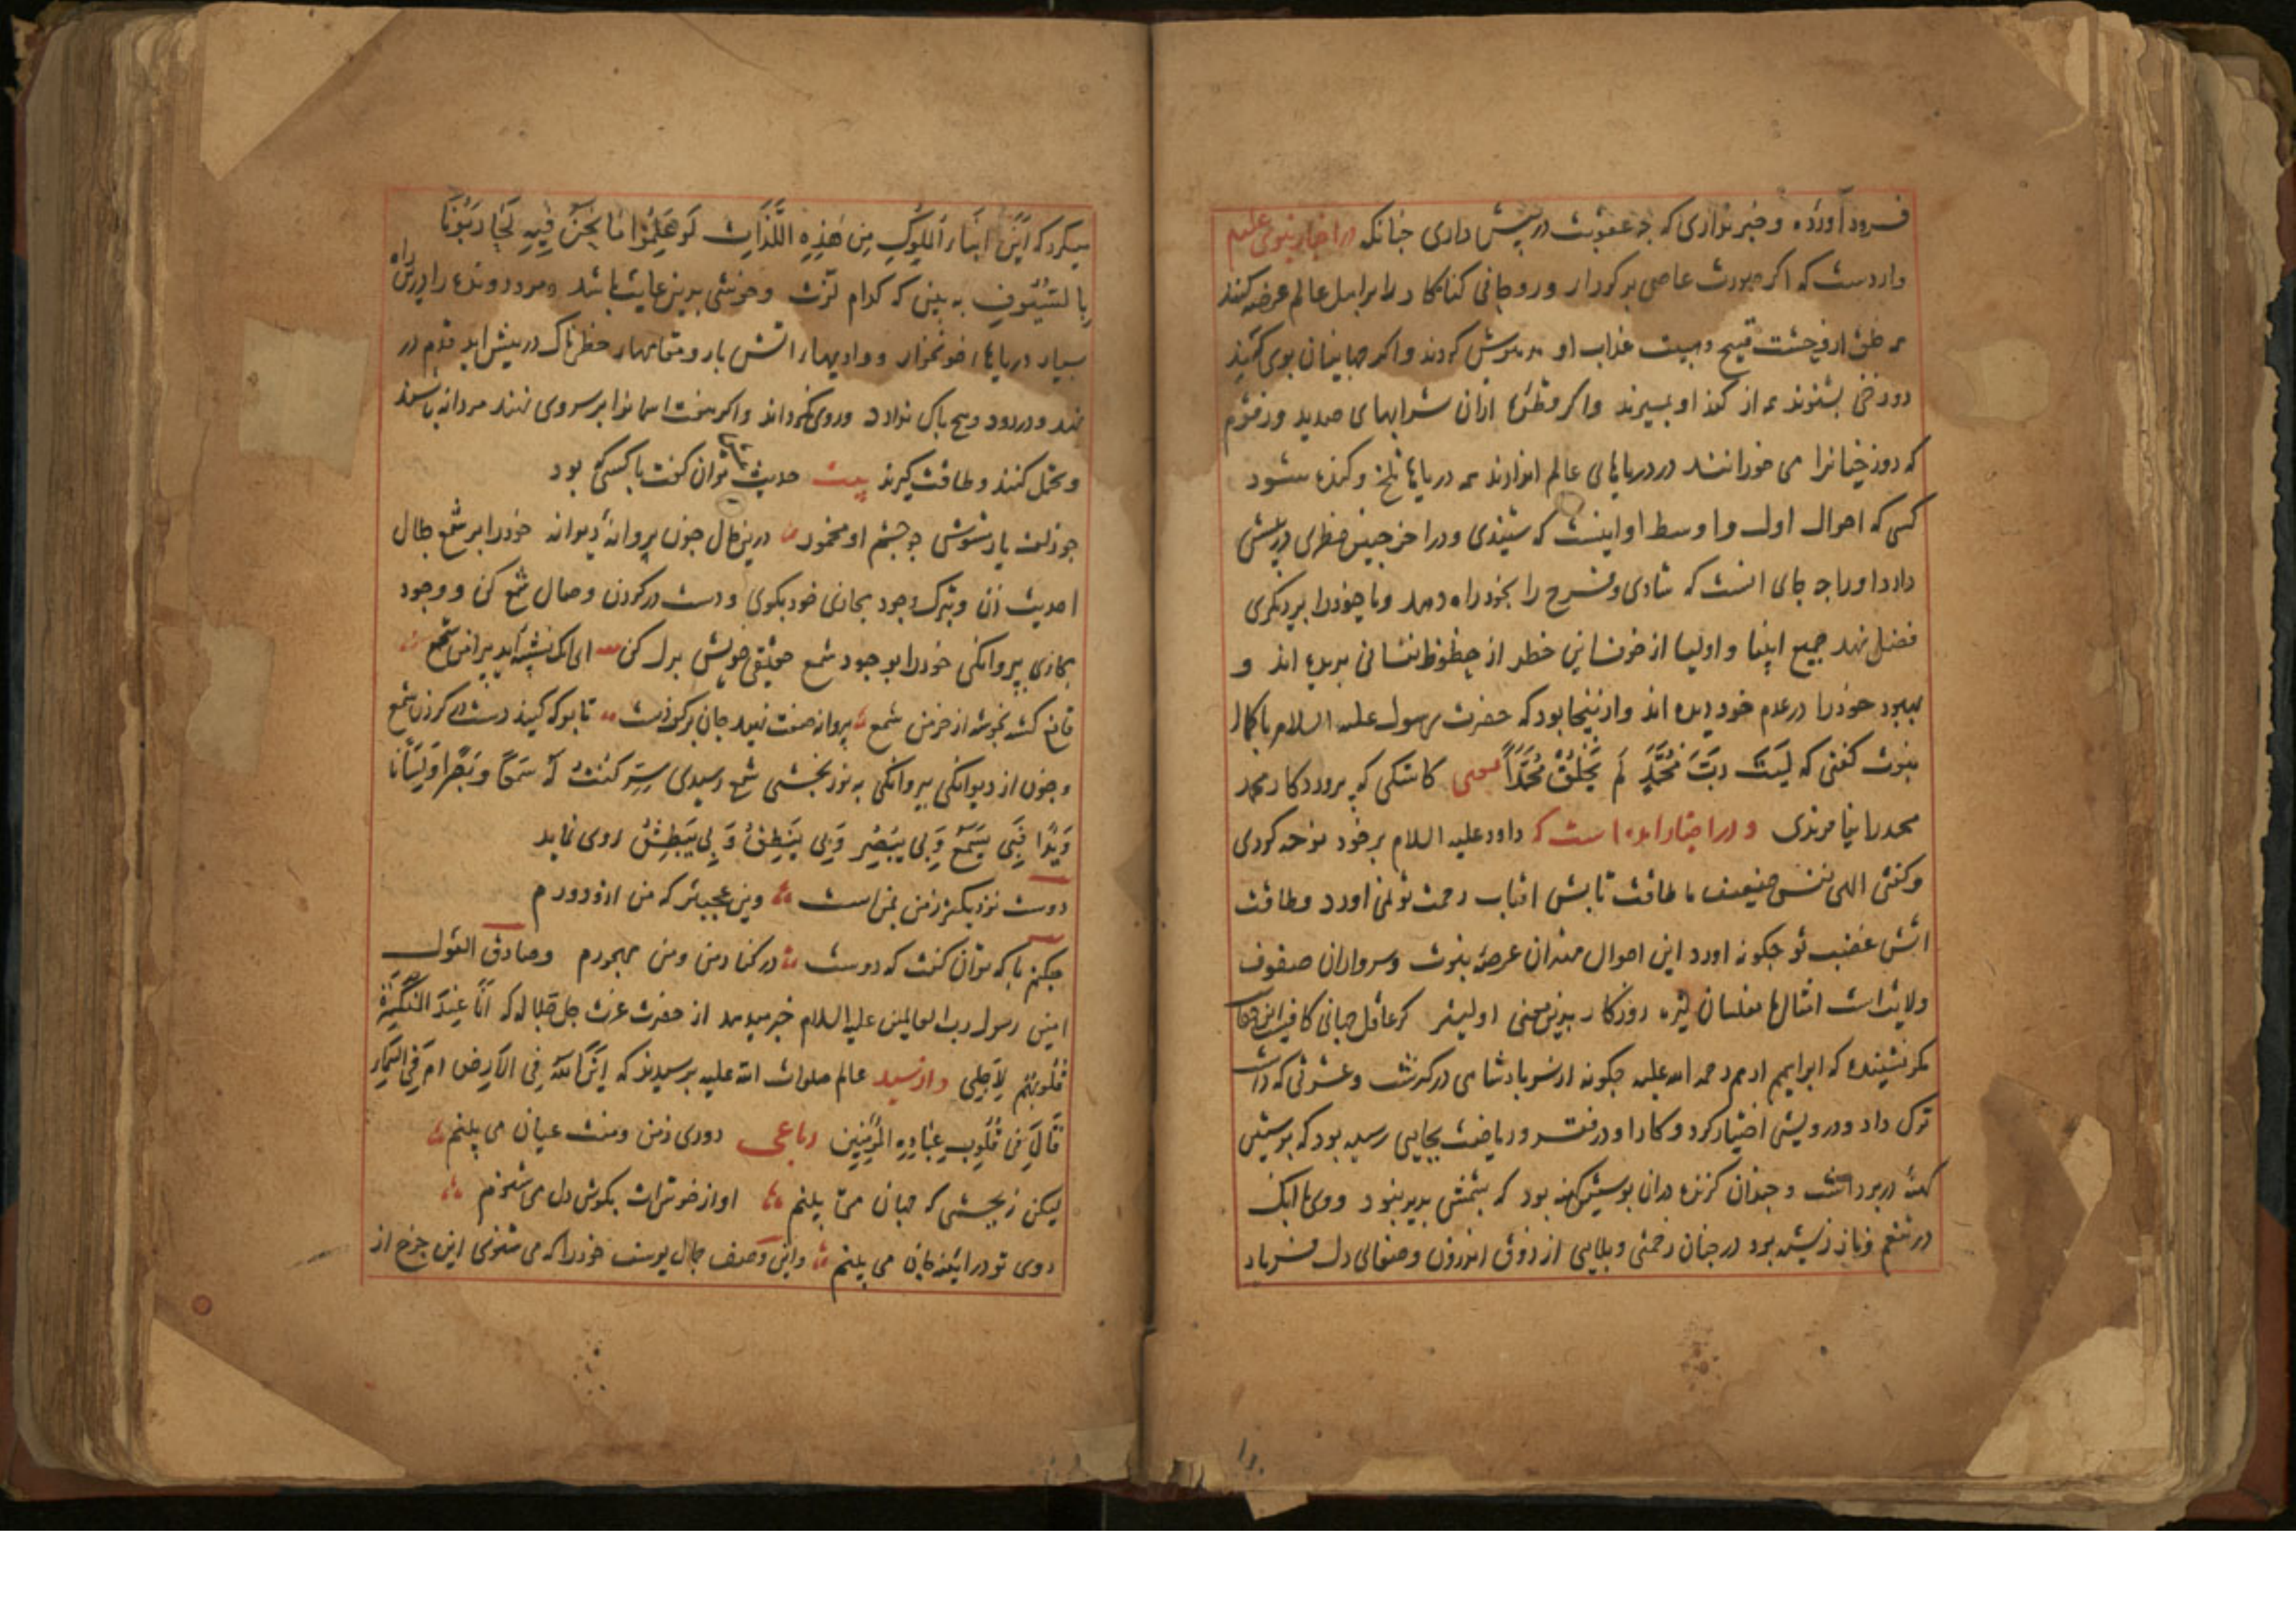 فرود آورده و خبر نداری که چه عقوبت در پیش داری چنانکه در اخبار نبوی علیه
وارد ست که اکر صورت عاصی بر کردار و روحانی کناهکار را بر اهل عالم عرضه کنند
همه خلق از وحشت قبیح و هیبت عذاب او مدهوش کردند و اکر جهانیان بوی کند
دوزخی بشنوند همه از کند او بمیرند و اکر قطره ازان شرابهای صدید و زقوم
که دوزخیانرا می خورانند در دریاهای عالم اندازند همه دریاها تلخ و کنده شود
کسی که احوال اول و اوسط او اینست که شنیدی و در آخر چنین خطری در پیش
دارد او را چه جای انست که شادی و فرح را بخود راه دهد و یا خود را بر دیکری
فضل نهد جمیع انبیا و اولیا از خوف این خطر از حظوظ نفسانی بریده اند و
بهبود خود را در عدم خود دیده اند و ازینجا بود که حضرت رسول علیه السلام با کمال
نبوت کفتی که لَیتَ رَبَّ مُحَمَّدٍ لَم یَخلُق مُحَمَّداً معنی کاشکی که پروردکار محمد
محمد را نیافریدی و در اخبار آمده است که داود علیه السلام بر خود نوحه کردی
و کفتی الهی نفس ضعیف ما طاقت تابش افتاب رحمت تو نمی اورد و طاقت
اتش غضب تو چکونه اورد این احوال مهتران عرصه نبوت و سرواران صفوف
ولایت است امثال ما مفلسان تیره روزکار بدین معنی اولیتر کر عاقل جهانی کافیست این
مکر نشینده که ابراهیم ادهم رحمه الله علیه چکونه از سر پادشاهی درکذشت و عشرتی که داشت
ترک داد و درویشی اختیار کرد و کار او در فقر و ریاضت بجایی رسیده بود که پوستینی
کهنه در بر داشت و چندان کزنده دران پوستین کهنه بود که پشمش پدید نبود و وی با انک
در تنعم و ناز زیسته بود در چنان زحمتی و بلایی از ذوق اندرون و صفای دل فریاد
میکرد که اَینَ اَبنَاءُ المُلُوکِ مِن هٰذِهِ اللَّذَّاتِ لَو عَلِمُوا مَا نَحنُ فِیهِ لَحَارَبُونَا
بِالسُّیُوفِ به بینی که کدام لذت و خوشی بدین غایت باشد و مرد رونده را درین راه
بسیار دریاهاء خونخوار و وادیهاء اتش بار و مقامهاء خطرناک در پیش اید قدم در
نهد و در رود و هیچ باک ندارد و روی نکرداند و اکر هفت اسمانرا بر سر وی نهند مردانه باشد
و تحمل کنند و طاقت کیرند بیت حدیث توان کفت با کسی که بود
چو زلف یار مشوش چو چشم او مخمور درین حال چون پروانه دیوانه خود را بر شمع جلال
احدیت زن و بترک وجود مجازی خود بکوی و دست در کردن وصال شمع کن و وجود
مجازی پروانکی خود را بوجود شمع حقیقی خویش بدل کن ای انک نشسته اید پیرامن شمع
قانع کشته بخوشه از خرمن شمع پروانه صفت نهید جان بر کف دست تا بو که کنید دست در کردن شمع
و چون از دیوانکی پروانکی به نور بخشی شمع رسیدی سِتر کُنتُ لَهُ سَمعًا وَ بَصَرًا وَ لِسَانًا
وَ یَدًا فَبِی یَسمَعُ وَ بِی یُبصِرُ وَ بِی یَنطِقُ وَ بِی یَبطِشُ روی نماید
دوست نزدیکتر از من بمن است وین عجبتر که من ازو دورم
چکنم با که توان کفت که دوست در کنار من و من مهجورم و صادق القول
امین رسول رب العالمین علیه السلام خبر میدهد از حضرت عزت جل جلاله که اَنَا عِندَ المُنکَسِرَةِ
قُلُوبُهُم لِاَجلِی و از سید عالم صلوات الله علیه پرسیدند که اَینَ اللّٰهُ فِی الاَرضِ اَم فِی السَّمَاءِ
قَالَ فِی قُلُوبِ عِبَادِهِ المُؤمِنِینَ رباعی دوری ز من و منت عیان می بینم
لیکن ز بچشمی که جهان می بینم اواز خوش است بکوش دل می شنوم
روی تو در ائینه جان می بینم و این وصف جمال یوسف خود را که می شنوی این چرخ از